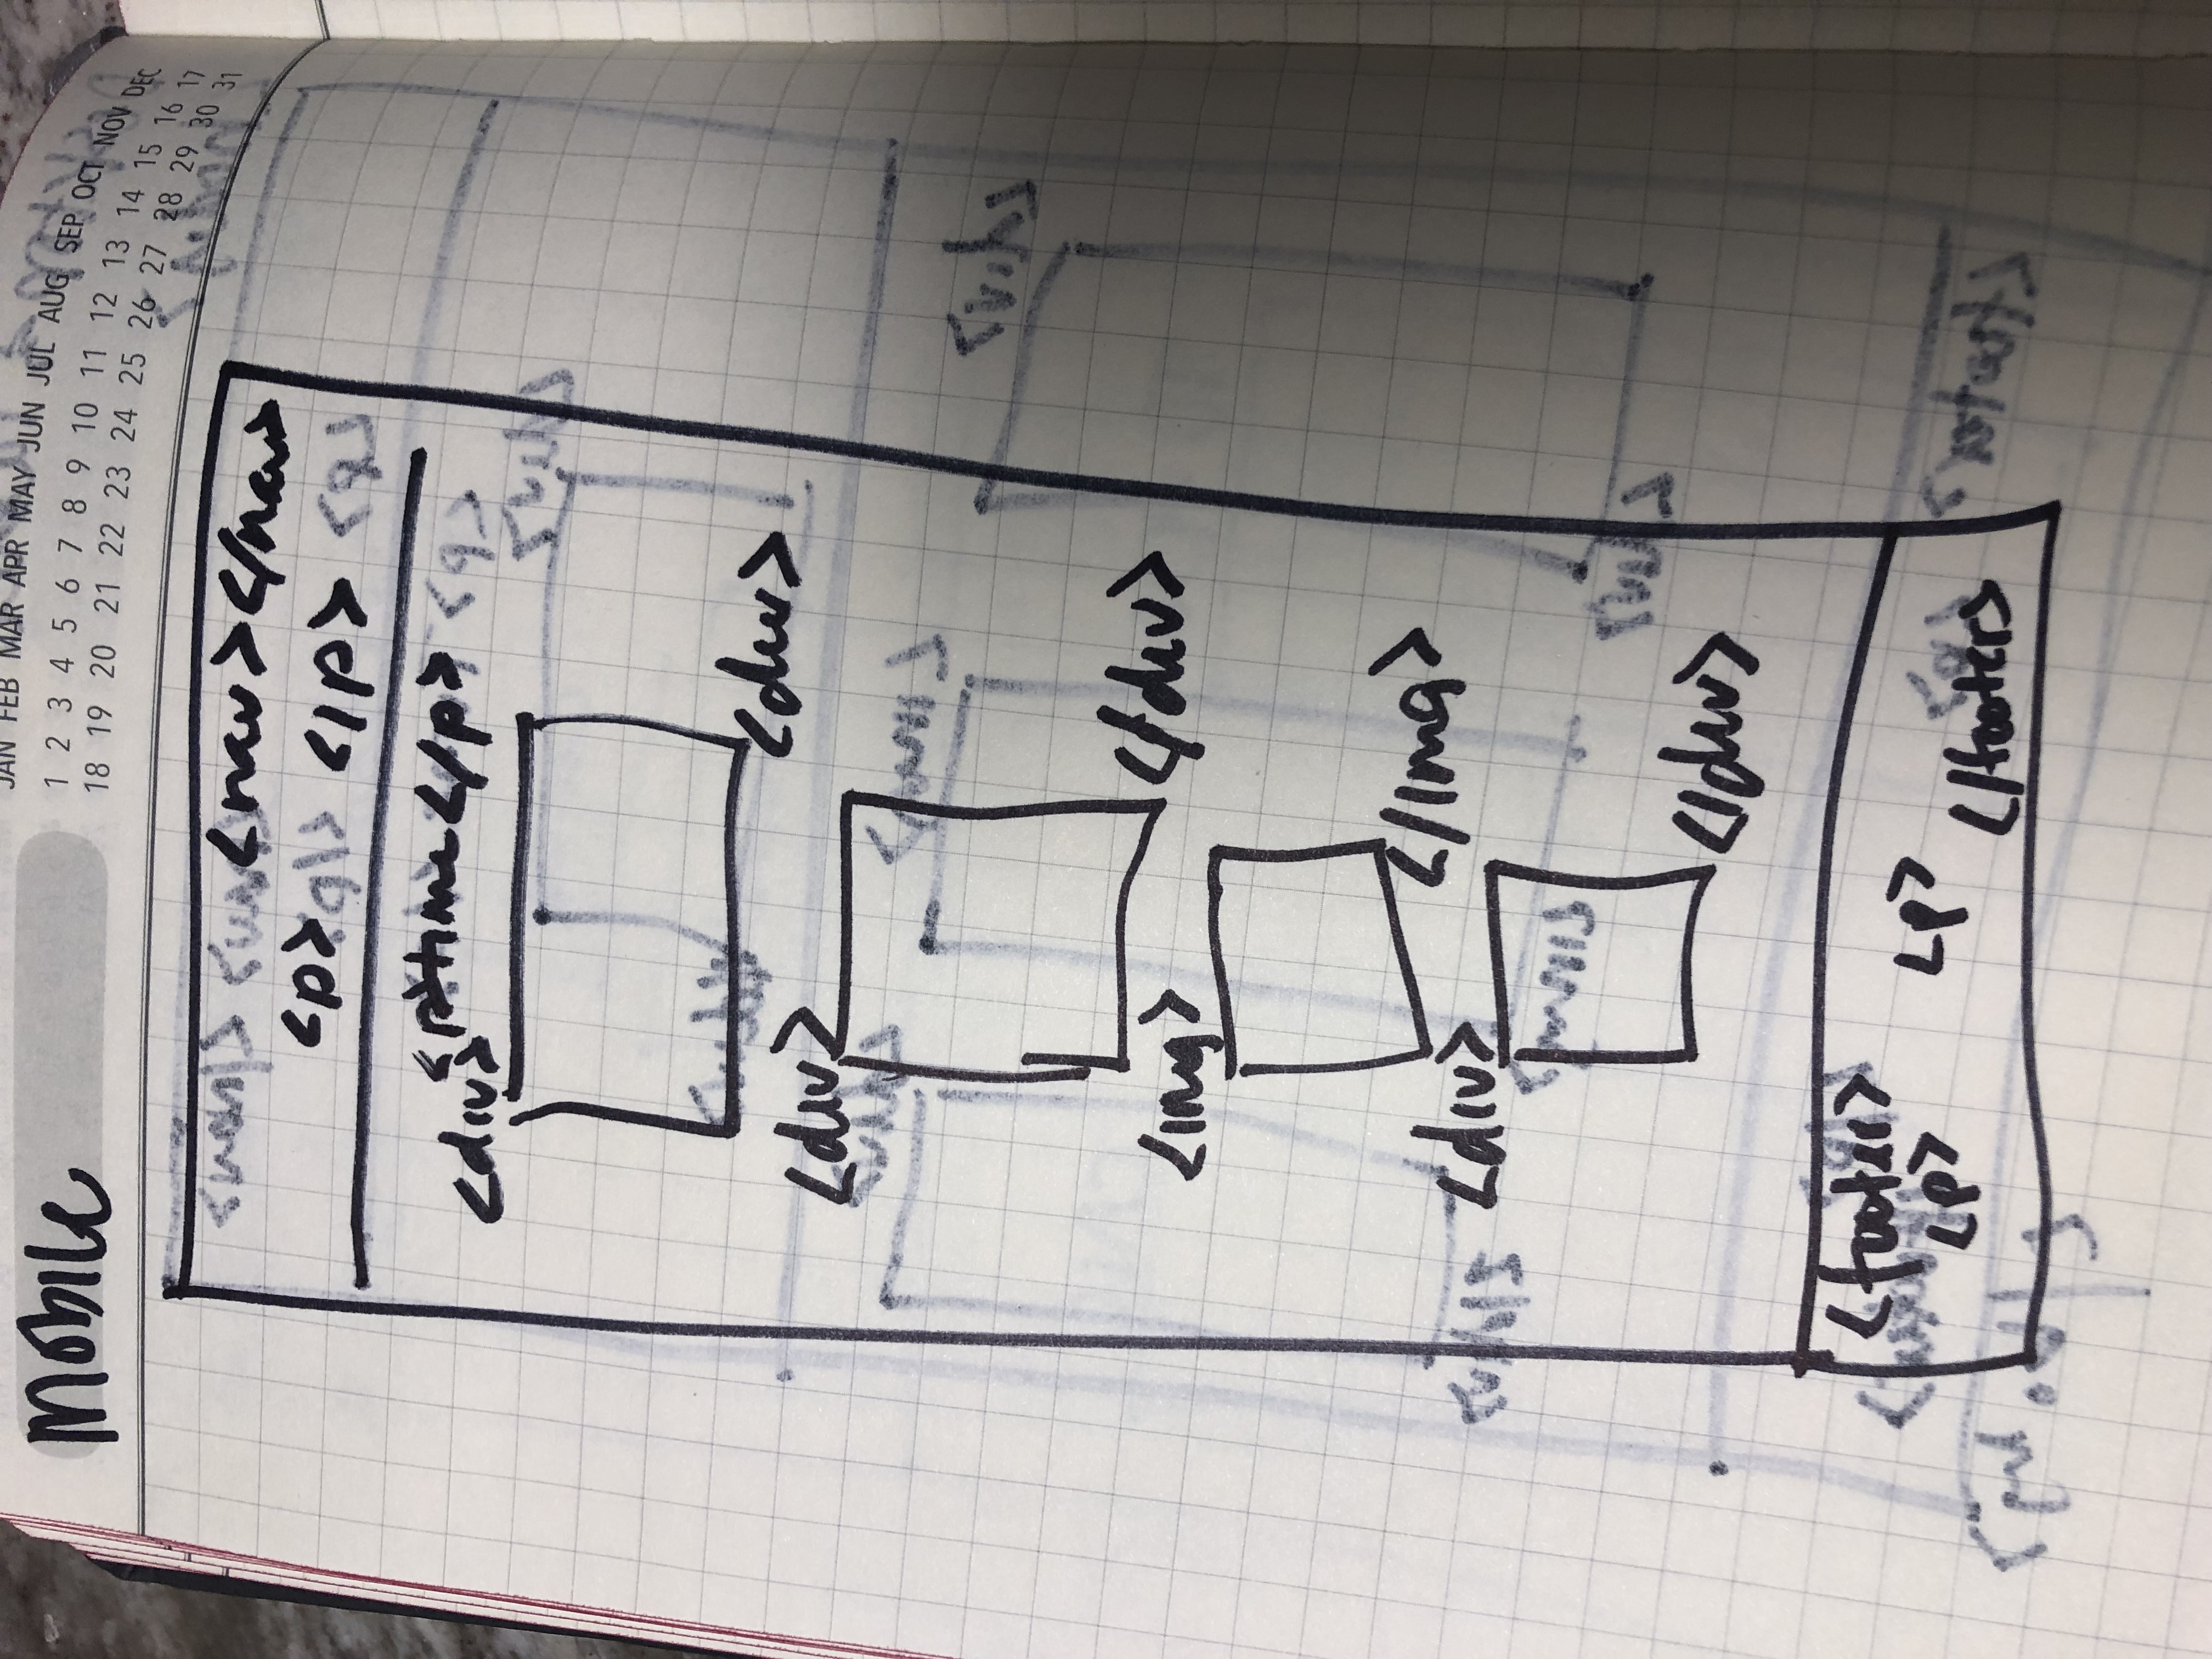 Mobile
JAN FEB MAR APR MAY JUN JUL AUG SEP OCT NOV DEC
1 2 3 4 5 6 7 8 9 10 11 12 13 14 15 16 17
18 19 20 21 22 23 24 25 26 27 28 29 30 31
<nav></nav>
<p> </p>
<p>time</p>
<div>
<div>
<div>
</div>
<img>
</img>
<div>
</div>
<footer>
<p> <p>
</footer>